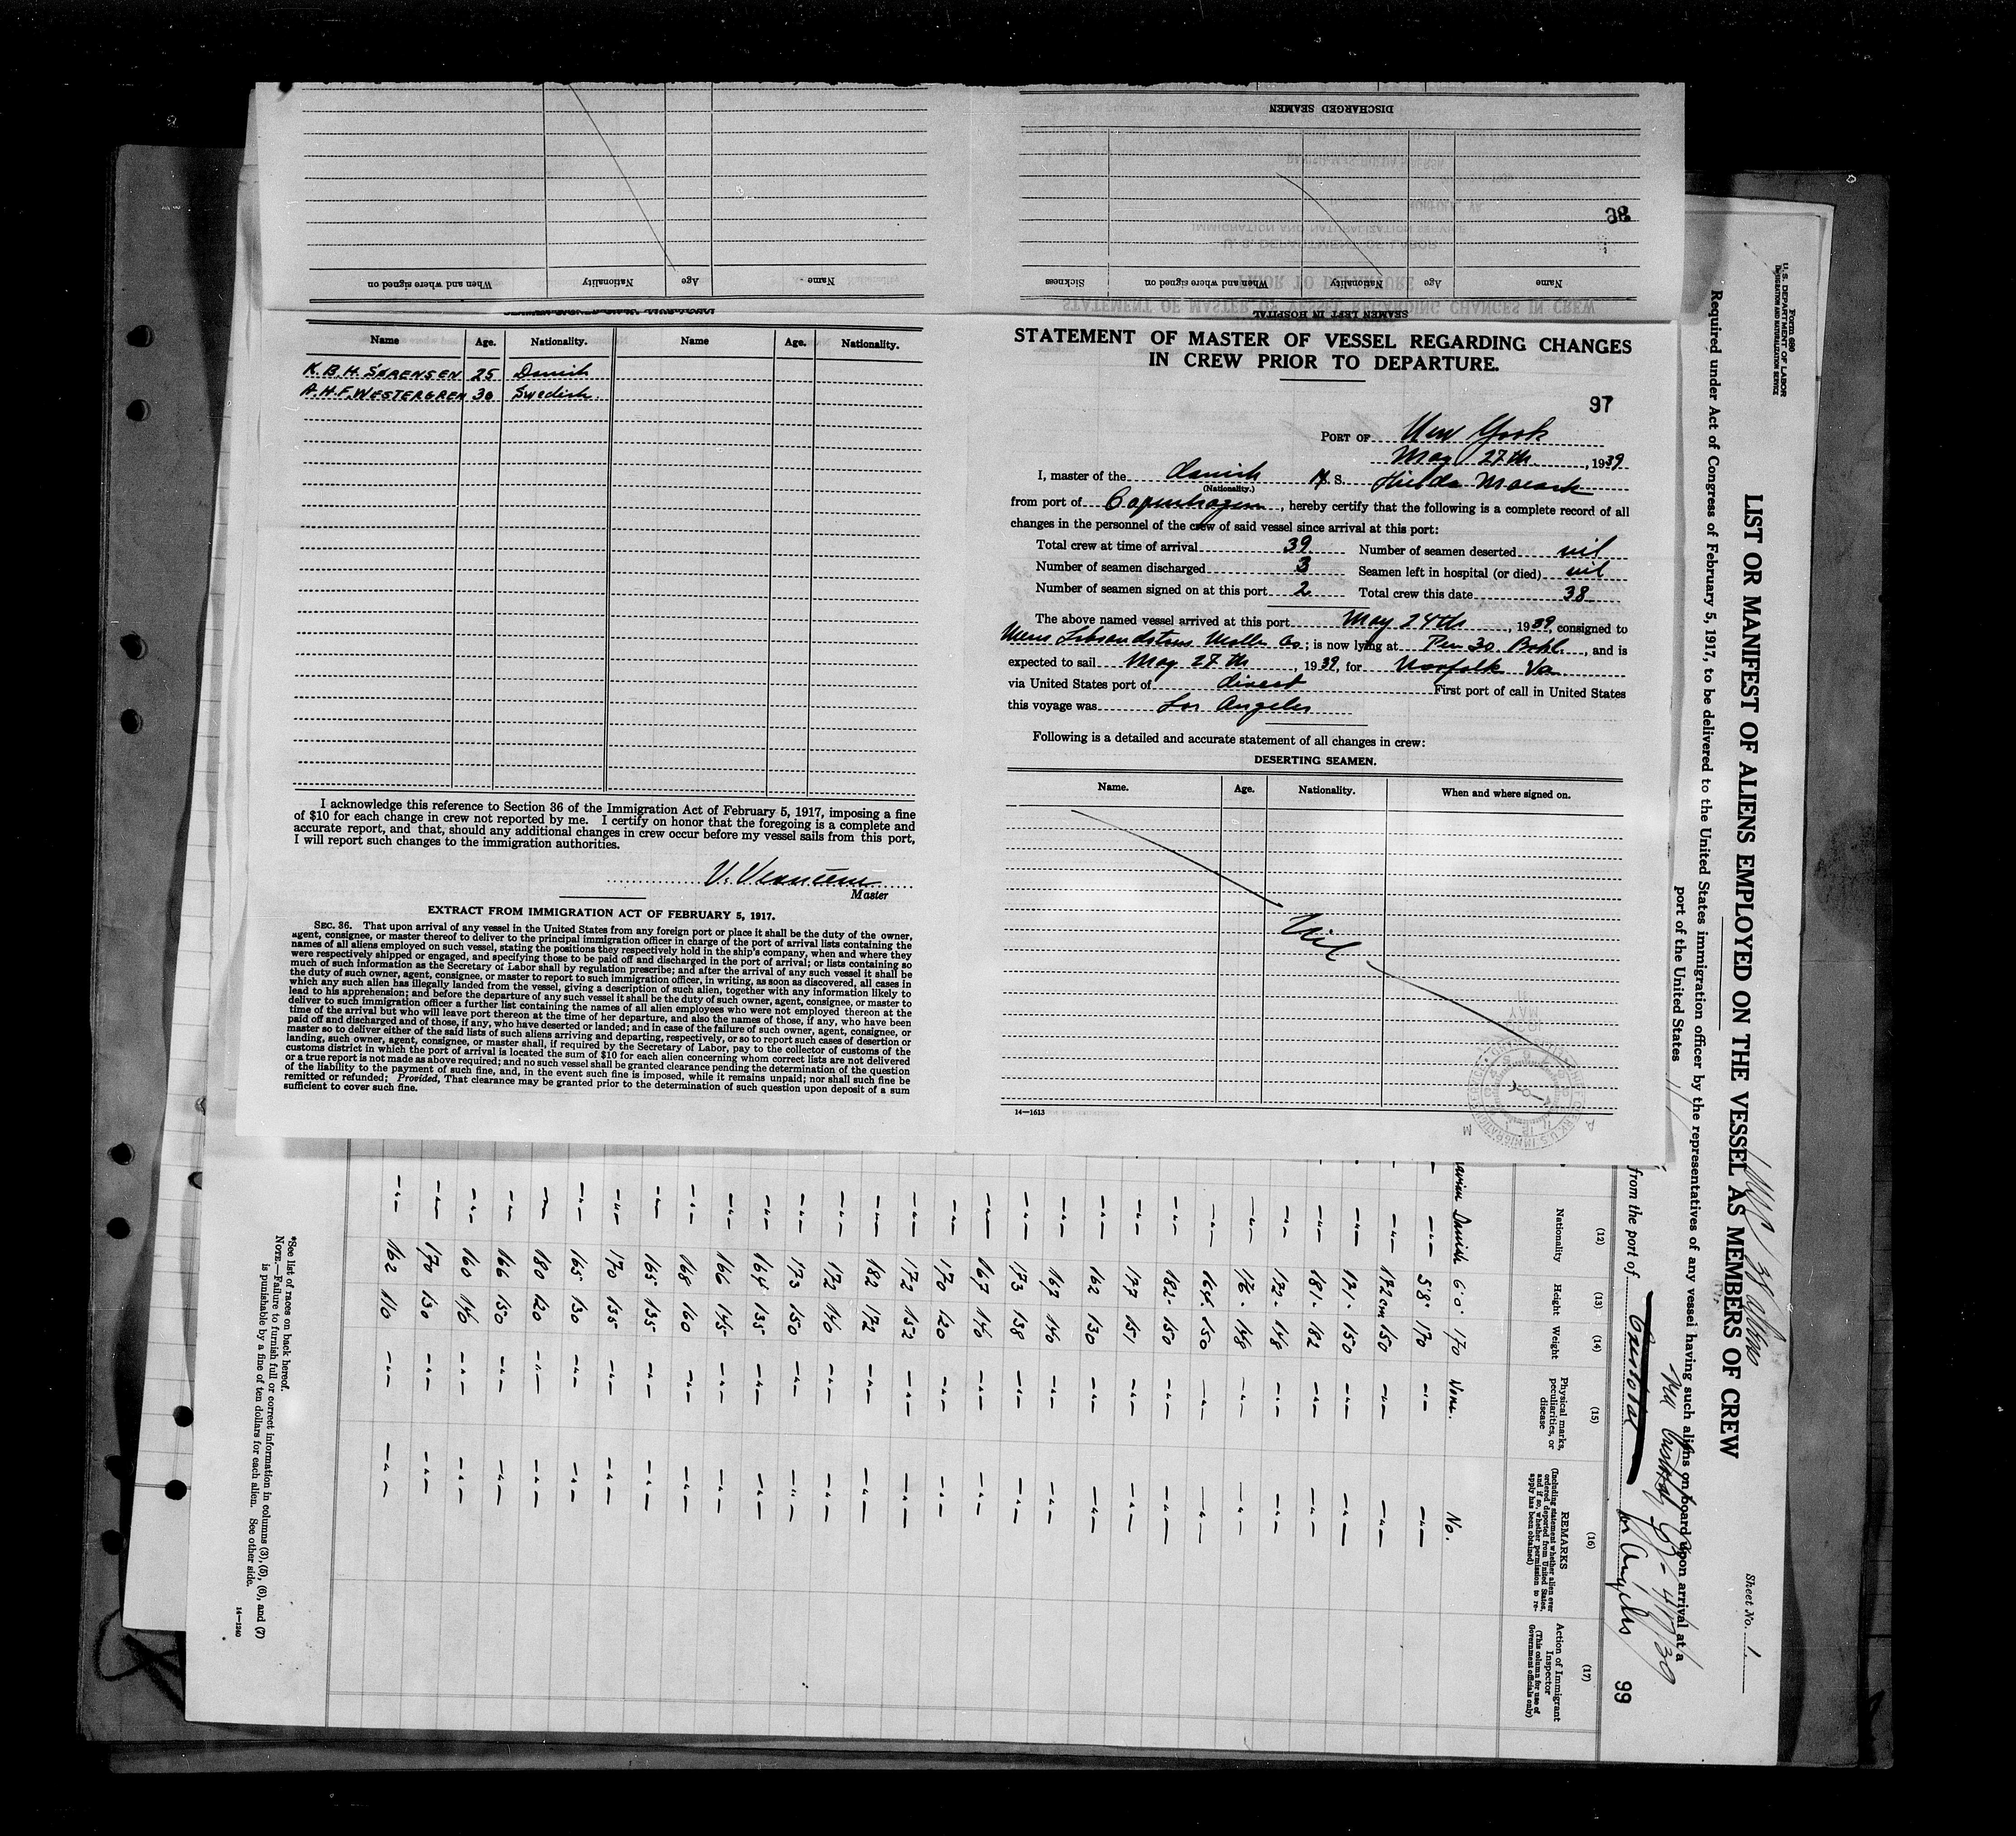 DISCHARGED SEAMEN
98
Name Age Nationality When and where signed on
Name Age Nationality When and where signed on Sickness
SEAMEN LEFT IN HOSPITAL
Name Age. Nationality. Name Age. Nationality.
K. B. H. SØRENSEN 25 Danish
A. H. F. WESTERGREN 30 Swedish.
I acknowledge this reference to Section 36 of the Immigration Act of February 5, 1917, imposing a fine
of $10 for each change in crew not reported by me. I certify on honor that the foregoing is a complete and
accurate report, and that, should any additional changes in crew occur before my vessel sails from this port,
I will report such changes to the immigration authorities.
Master
EXTRACT FROM IMMIGRATION ACT OF FEBRUARY 5, 1917.
SEC. 36. That upon arrival of any vessel in the United States from any foreign port or place it shall be the duty of the owner,
agent, consignee, or master thereof to deliver to the principal immigration officer in charge of the port of arrival lists containing the
names of all aliens employed on such vessel, stating the positions they respectively hold in the ship's company, when and where they
were respectively shipped or engaged, and specifying those to be paid off and discharged in the port of arrival; or lists containing so
much of such information as the Secretary of Labor shall by regulation prescribe; and after the arrival of any such vessel it shall be
the duty of such owner, agent, consignee, or master to report to such immigration officer, in writing, as soon as discovered, all cases in
which any such alien has illegally landed from the vessel, giving a description of such alien, together with any information likely to
lead to his apprehension; and before the departure of any such vessel it shall be the duty of such owner, agent, consignee, or master to
deliver to such immigration officer a further list containing the names of all alien employees who were not employed thereon at the
time of the arrival but who will leave port thereon at the time of her departure, and also the names of those, if any, who have been
paid off and discharged and of those, if any, who have deserted or landed; and in case of the failure of such owner, agent, consignee, or
master so to deliver either of the said lists of such aliens arriving and departing, respectively, or so to report such cases of desertion or
landing, such owner, agent, consignee, or master shall, if required by the Secretary of Labor, pay to the collector of customs of the
customs district in which the port of arrival is located the sum of $10 for each alien concerning whom correct lists are not delivered
or a true report is not made as above required; and no such vessel shall be granted clearance pending the determination of the question
of the liability to the payment of such fine, and, in the event such fine is imposed, while it remains unpaid; nor shall such fine be
remitted or refunded; Provided, That clearance may be granted prior to the determination of such question upon deposit of a sum
sufficient to cover such fine.
STATEMENT OF MASTER OF VESSEL REGARDING CHANGES
IN CREW PRIOR TO DEPARTURE.
97
PORT OF New York
May 27th, 1939
I, master of the danish M S. Hulda Maersk
(Nationality.)
from port of Copenhagen, hereby certify that the following is a complete record of all
changes in the personnel of the crew of said vessel since arrival at this port:
Total crew at time of arrival 39 Number of seamen deserted nil
Number of seamen discharged 3 Seamen left in hospital (or died) nil
Number of seamen signed on at this port 2 Total crew this date 38
The above named vessel arrived at this port May 24th, 1939, consigned to
; is now lying at Pier 30 Bokl., and is
expected to sail May 27th, 1939, for Norfolk Va
via United States port of direct First port of call in United States
this voyage was Los Angeles
Following is a detailed and accurate statement of all changes in crew:
DESERTING SEAMEN.
Name. Age. Nationality. When and where signed on.
Nil
14—1613
Form 689
U. S. DEPARTMENT OF LABOR
IMMIGRATION AND NATURALIZATION SERVICE
Sheet No. 1.
LIST OR MANIFEST OF ALIENS EMPLOYED ON THE VESSEL AS MEMBERS OF CREW
Required under Act of Congress of February 5, 1917, to be delivered to the United States immigration officer by the representatives of any vessel having such aliens on board upon arrival at a
port of the United States
from the port of Cristobal Los Angeles
99
(12) (13) (14) (15) (16) (17)
Nationality Height Weight Physical marks, peculiarities, or disease REMARKS (Including statement whether alien ever ordered deported from United States, and if so, whether permission to reapply has been obtained) Action of Immigrant Inspector (This column for use of Government officials only)
Danish 6'0" 170 None. No.
-"- 5'8" 170 -"- -"-
-"- 172 cm 150 -"- -"-
-"- 171- 150 -"- -"-
-"- 181- 182 -"- -"-
-"- 172- 148 -"- -"-
-"- 176- 148 -"- -"-
-"- 164- 150 -"- -"-
-"- 182- 150 -"- -"-
-"- 177 151 -"- -"-
-"- 162 130 -"- -"-
-"- 167 140 -"- -"-
-"- 173 138 -"- -"-
-"- 167 140 -"- -"-
-"- 170 120 -"- -"-
-"- 172 152 -"- -"-
-"- 182 172 -"- -"-
-"- 172 140 -"- -"-
-"- 173 150 -"- -"-
-"- 164 135 -"- -"-
-"- 166 145 -"- -"-
-"- 168 160 -"- -"-
-"- 165 135 -"- -"-
-"- 170 155 -"- -"-
-"- 165 130 -"- -"-
-"- 180 120 -"- -"-
-"- 166 150 -"- -"-
-"- 160 140 -"- -"-
-"- 170 130 -"- -"-
-"- 162 110 -"- -"-
*See list of races on back hereof.
NOTE.—Failure to furnish full or correct information in columns (3), (5), (6), and (7)
is punishable by a fine of ten dollars for each alien. See other side.
14—1240